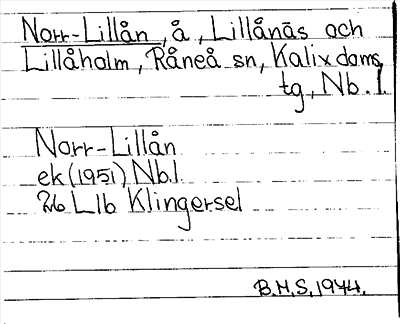 Norr-Lillån, å, Lillånäs och
Lillåholm, Råneå sn, Kalix doms
tg, Nb. l.
Norr-Lillån
ek (1951) Nb.l.
26 L1b Klingersel
B.H.S, 1944.